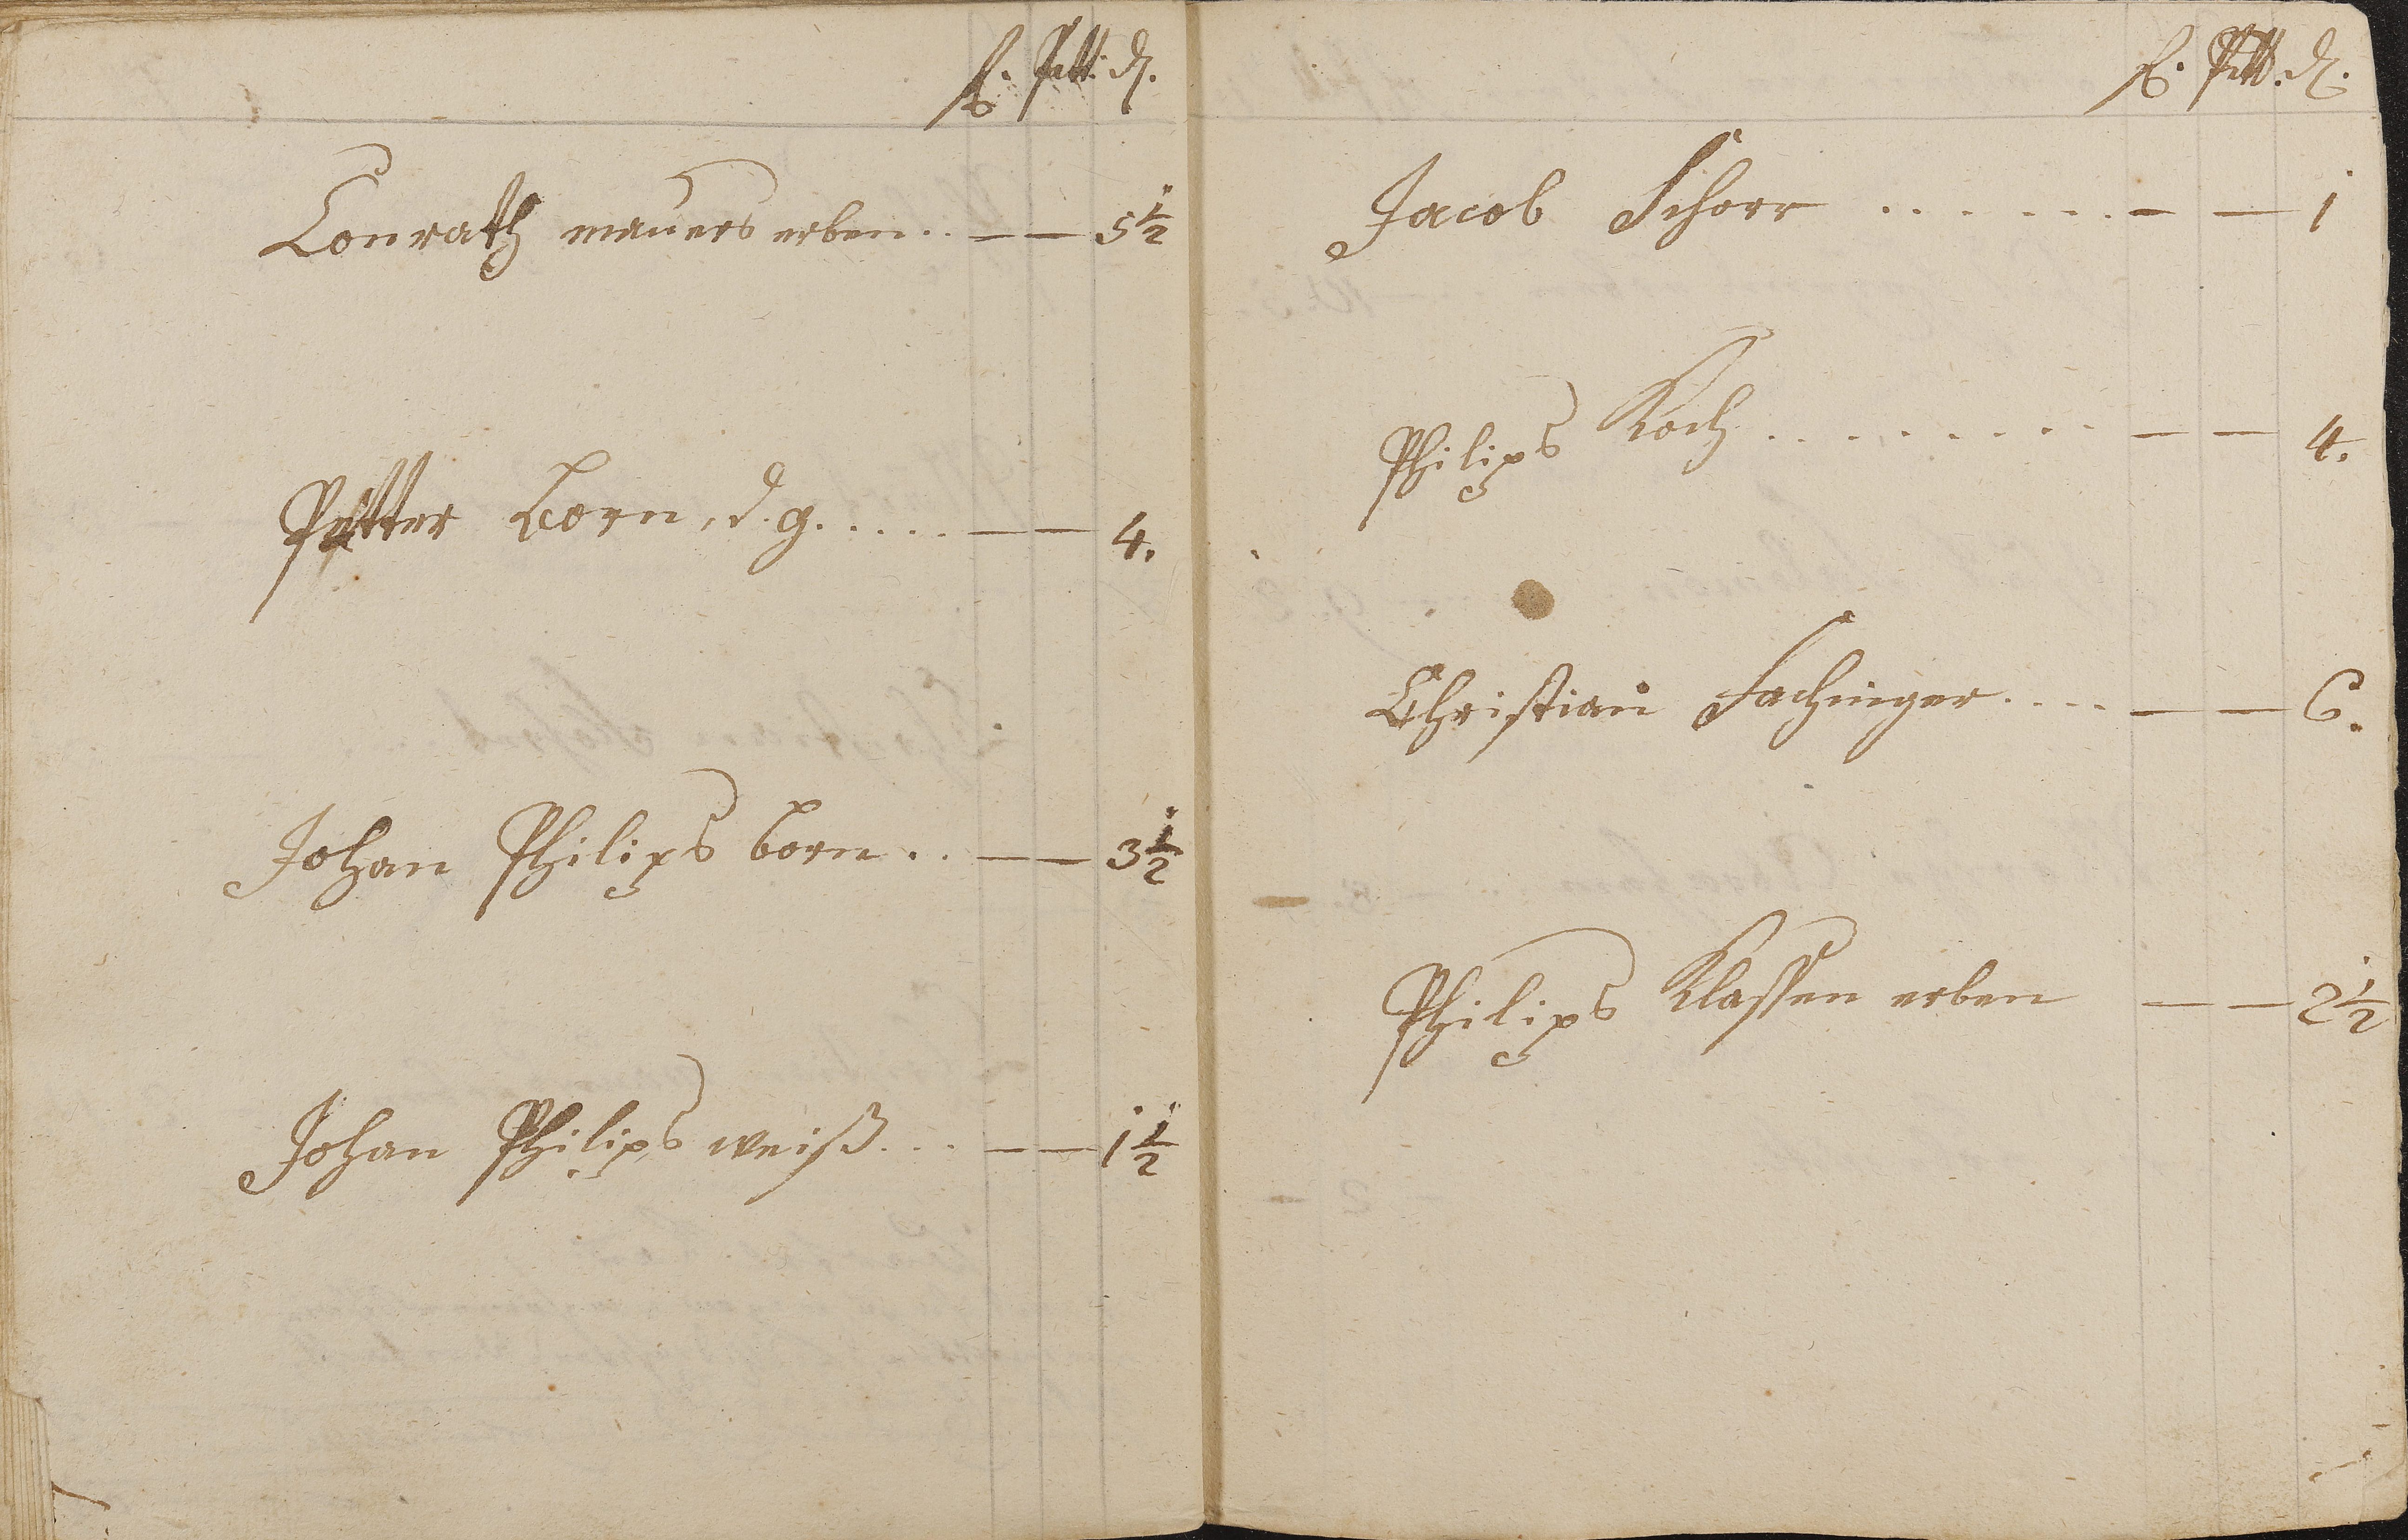 fl. Pett. d.
Conrath mauers erben .. — — 5 1/2
Petter Born, d. g. .... — — 4.
Johan Philips born .. — — 3 1/2
Johan Philips weiß ... — — 1 1/2
fl. Pett. d.
Jacob Schorr ....... — — 1
Philips Koch ......... — — 4.
Christian Fachinger .... — — 6.
Philips Klassen erben — — 2 1/2